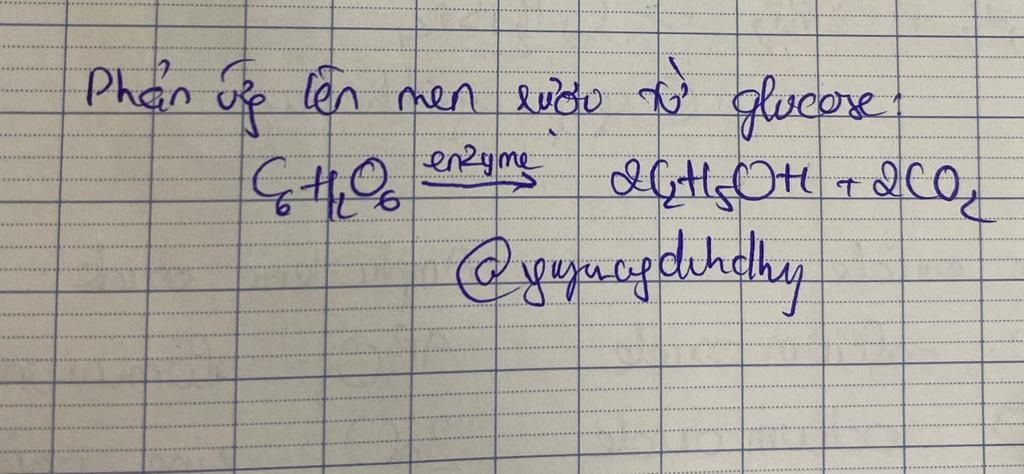 Phản ứng lên men rượu từ glucose:
C₆H₁₂O₆ enzyme→ 2C₂H₅OH + 2CO₂